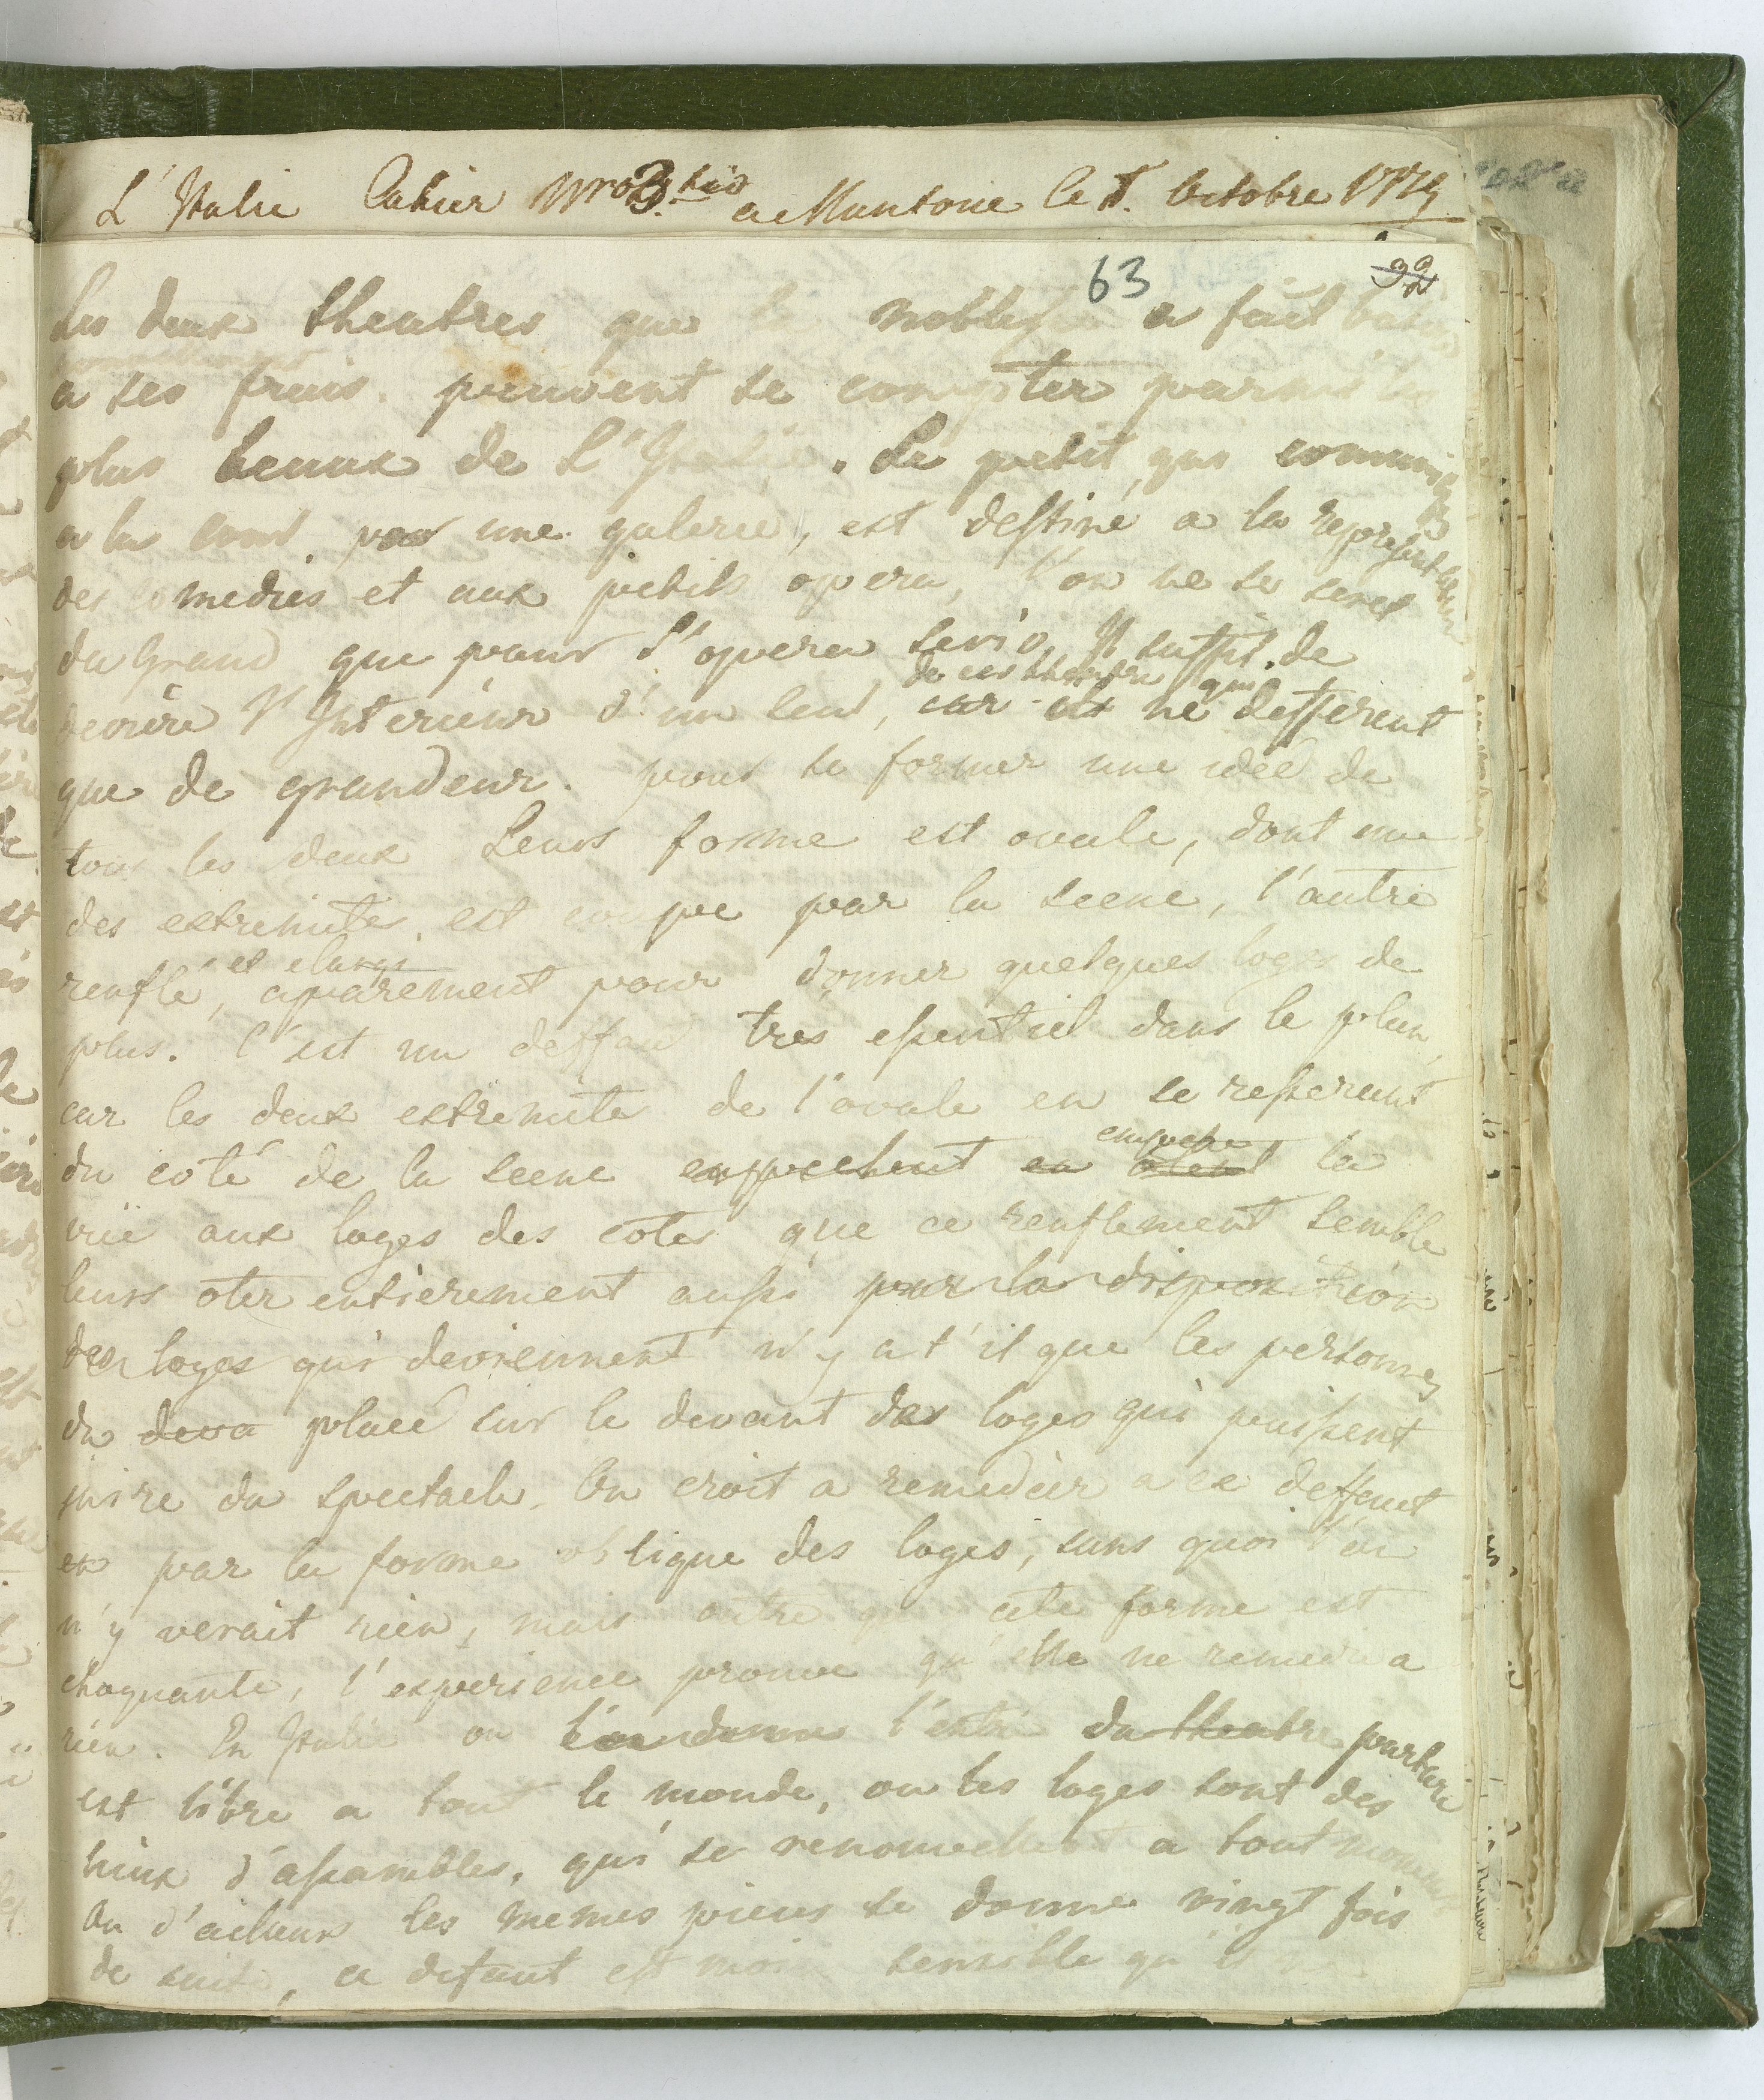 L'Italie Cahier Nro 3. bis a Mantoue le 1. Octobre 1774
63
32
Les deux theatres que la noblesse a fait
a ses frais. peuvent se compter parmis les
plus beaux de L'Italie. Le petit, qui comuniq
a la cour par une galerie, est destiné a la representation
des comedies et aux petits opera, l'on ne se sert
du Grand que pour l'opera serio. Il suffit de
de ces theatre qui
decrire l'Interieur d'un seul, car ils ne different
que de grandeur. pour se former une idée de
tous les deux Leurs forme est ovale, dont une
des extremites est coupe par la scene, l'autre
et elargi
renflé, aparement pour donner quelques loges de
plus. C'est un deffau tres essentiel dans le plan,
car les deux extremites de l'ovale en se resserant
empeche
du coté de la scene empechent en otent la
vüe aux loges des cotes que ce renflement semble
leurs oter entierement aussi par la disposition
des loges qui deviennent n'y a t'il que les personnes
du deva placé sur le devant des loges qui puissent
juire du spectacle. On croit a remedier a ce deffaut
en par la forme oblique des loges, sans quoi l'on
n'y verait rien, mais outre que cete forme est
choquante, l'experience prouve qu'elle ne remedie a
rien. En Italie ou l'on donne l'entré du theatre partere
est libre a tout le monde, ou les loges sont des
lieux d'assamblés, qui se renouvellent a tout moment
ou d'ailieurs les memes pieces se donne vingt fois
de suite, ce defaut est moin sensible qu'il